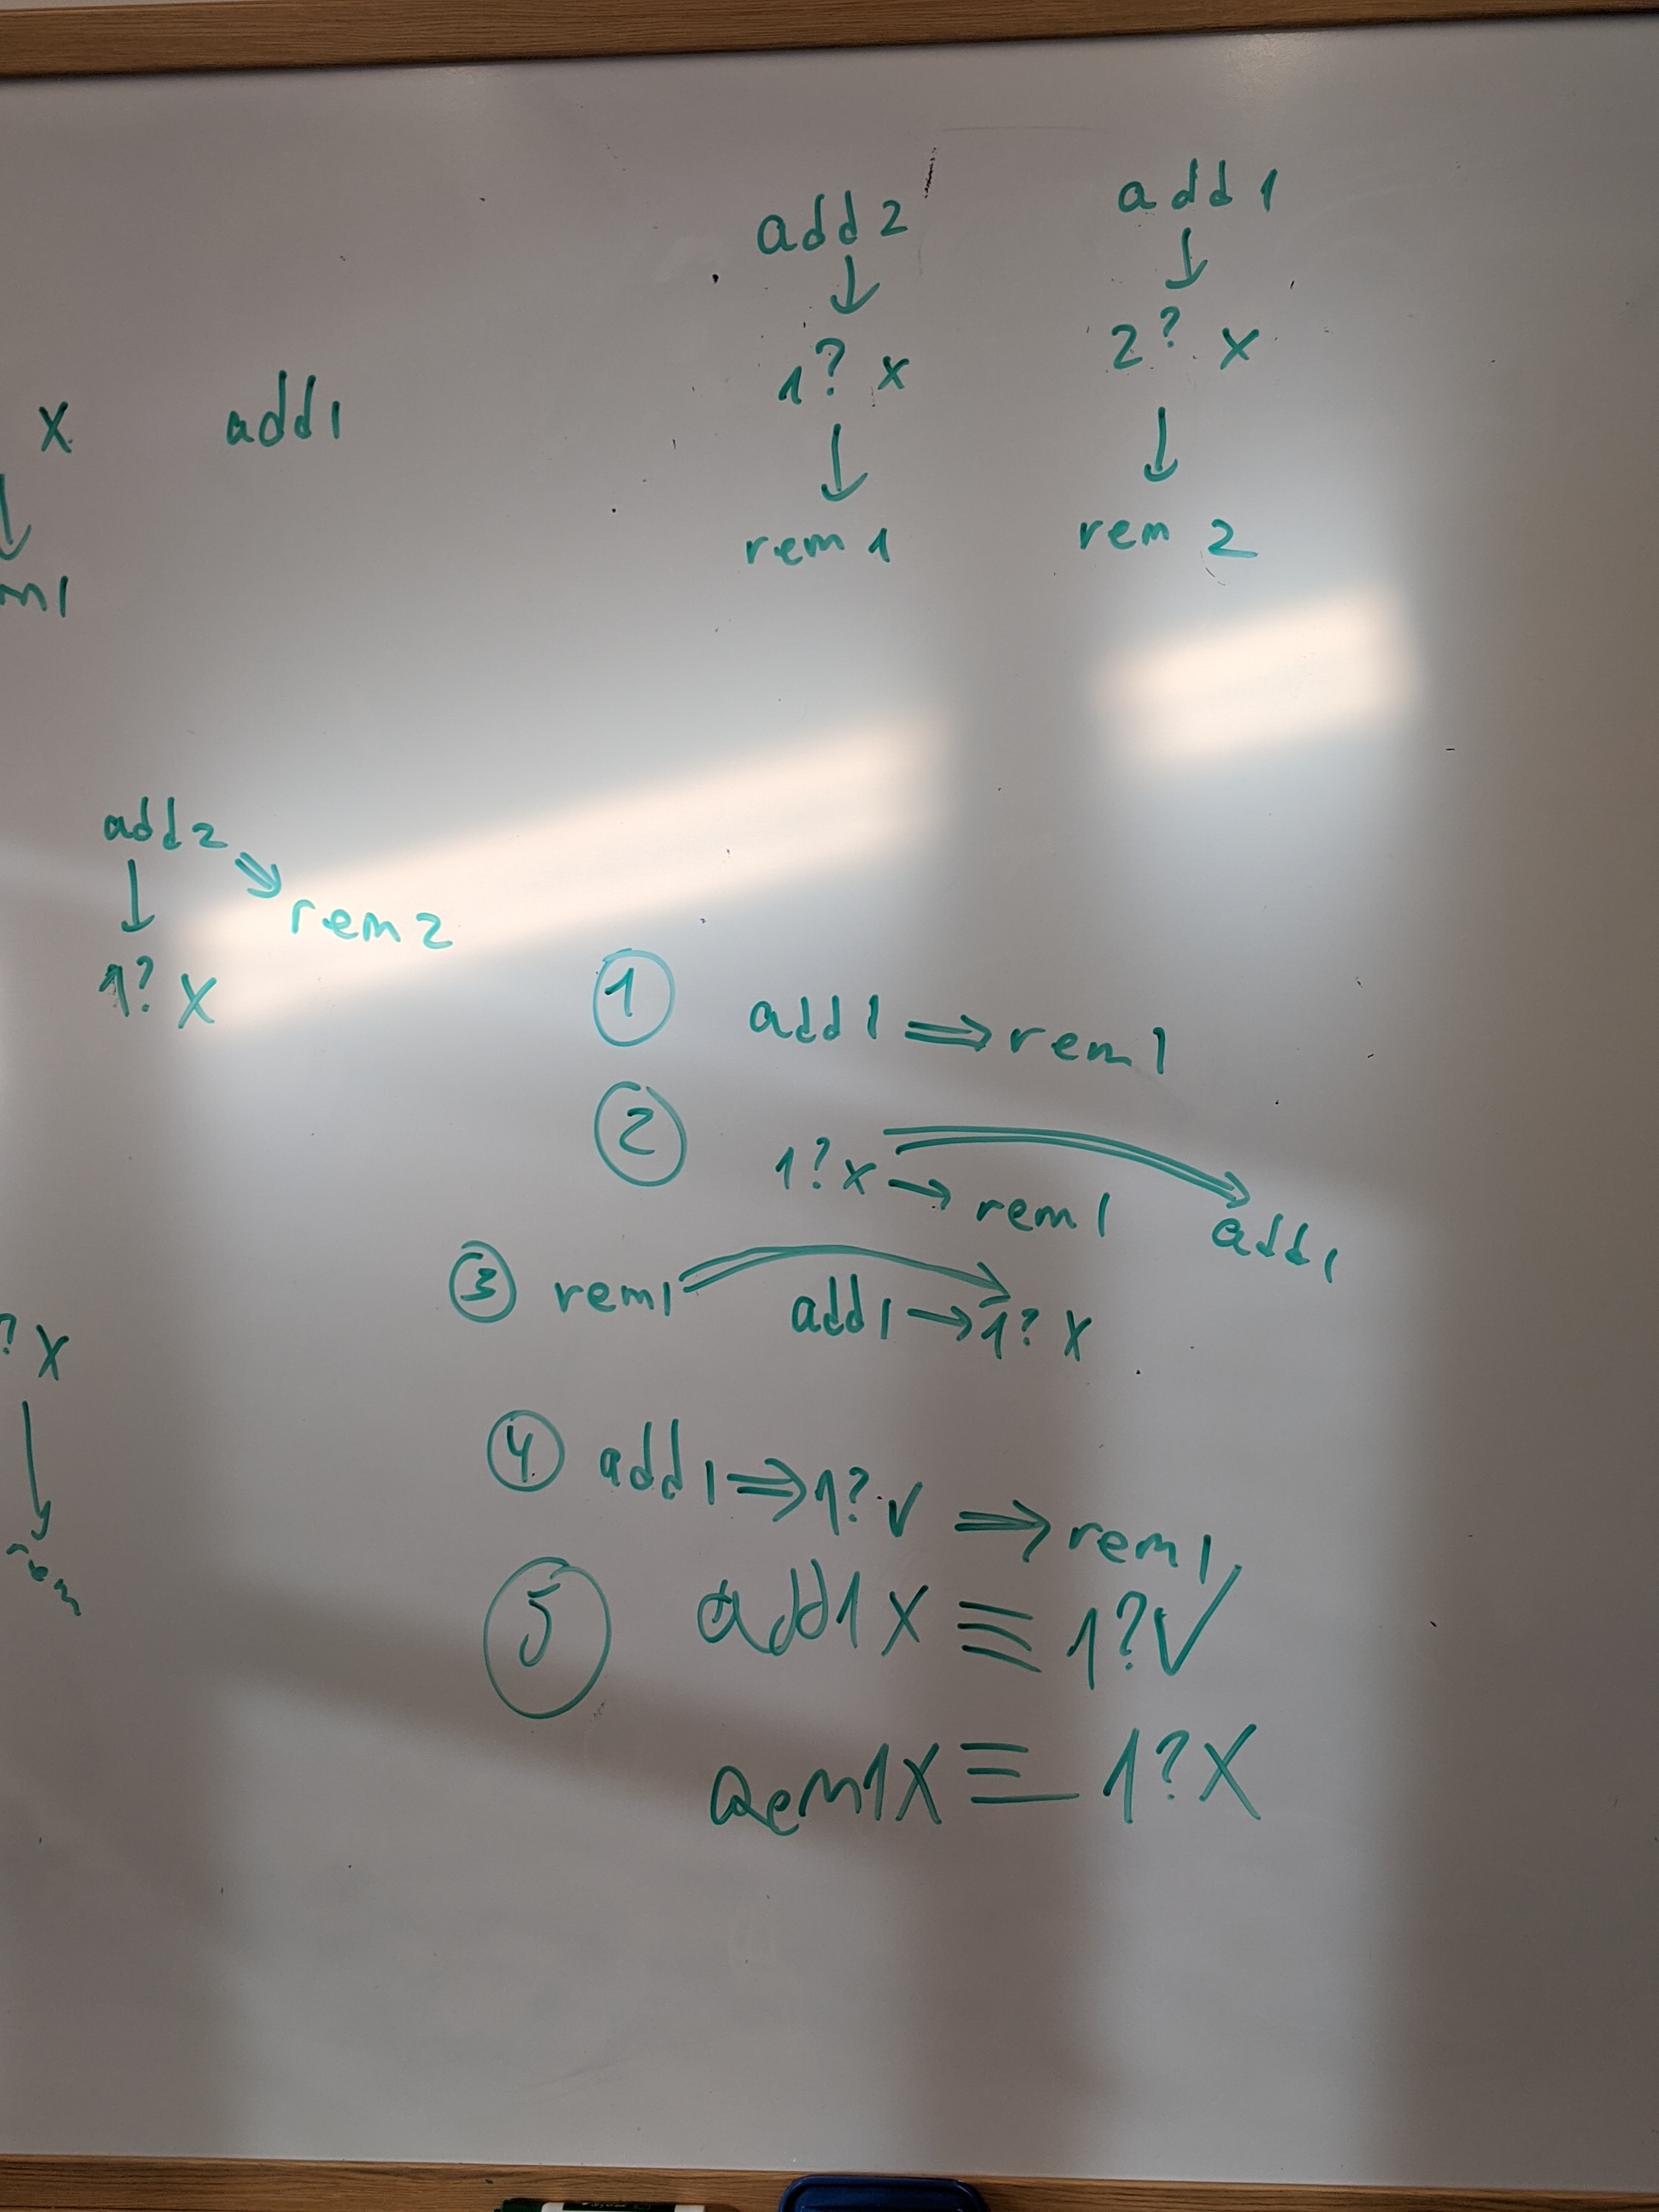 add2
↓
1? x
↓
rem 1
add 1
↓
2? x
↓
rem 2
x
↓
m1
add1
add2 ⇒ rem2
↓
1? x
① add1 ⇒ rem1
② 1? x → rem1 ⇒ add1
③ rem1 ⇒ add1 → 1? x
④ add1 ⇒ 1? ✓ ⇒ rem1
⑤ add1 x ≡ 1? ✓
rem1 x ≡ 1? x
? x
↓
rem